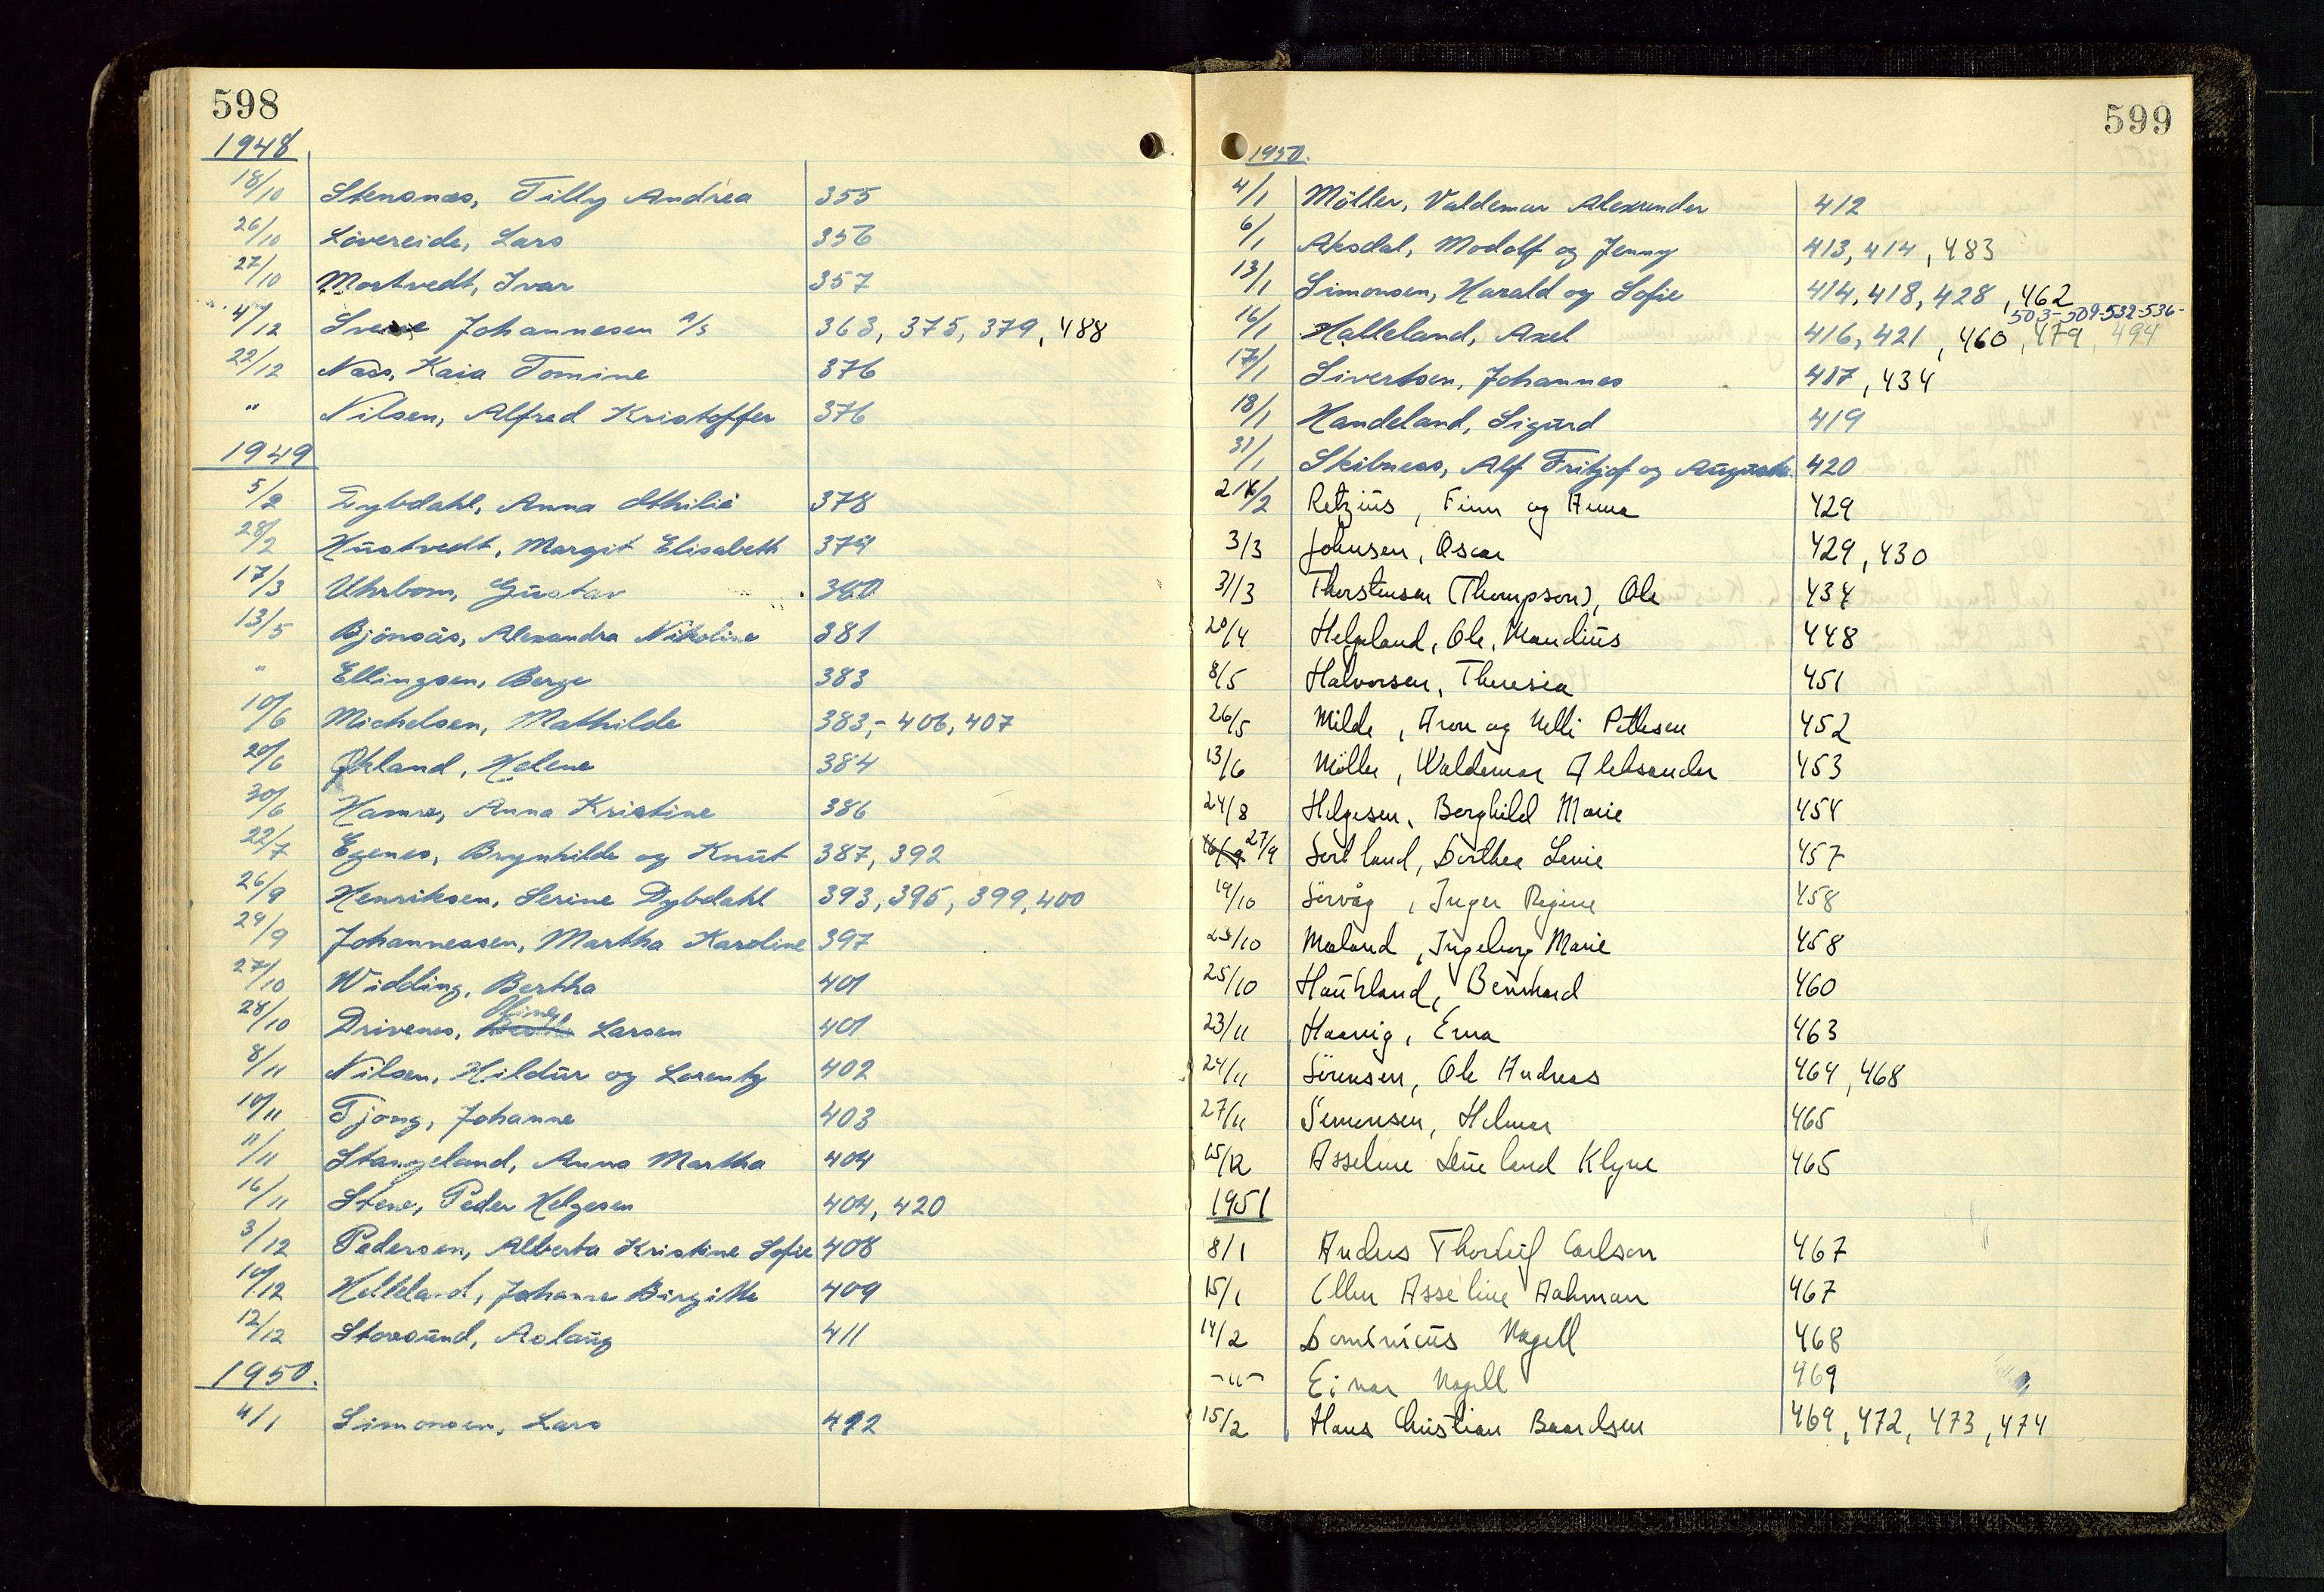 598
1948
18/10 Stensnæs, Tilly Andrea 355
26/10 Lövereide, Lars 356
27/10 Mostvedt, Ivar 357
4/12 Svere Johannesen A/S 363, 375, 379, 488
22/12 Næss, Kaia Tomine 376
" Nilsen, Alfred Kristoffer 376
1949
5/2 Dybdahl, Anna Othilie 378
28/2 Hustvedt, Margit Elisabeth 379
17/3 Uhrbom, Gustav 380
13/5 Bjönsås, Alexandra Nikoline 381
" Ellingsen, Berge 383
10/6 Michelsen, Mathilde 383,- 406, 407
20/6 Økland, Helene 384
30/6 Hamre, Anna Kristine 386
22/7 Egenes, Brynhilde og Knut 387, 392
26/9 Henriksen, Serine Dybdahl 393, 395, 399, 400
29/9 Johannessen, Martha Karoline 397
27/10 Widding, Bertha 401
28/10 Drivenes, Oline Larsen 401
8/11 Nilsen, Hildur og Lorentz 402
10/11 Tjong, Johanne 403
11/11 Stangeland, Anna Martha 404
16/11 Stene, Peder Helgesen 404, 420
3/12 Pedersen, Alberta Kristine Sofie 408
10/12 Helleland, Johanne Birgitte 409
12/12 Storesund, Aslaug 411
1950.
4/1 Simonsen, Lars 412
599
1950.
4/1 Möller, Valdemar Alexander 412
6/1 Aksdal, Modolf og Jenny 413, 414, 483
13/1 Simonsen, Harald og Sofie 414, 418, 428, 462
503-509-532-536-
16/1 Halleland, Axel 416, 421, 460, 479, 494
17/1 Sivertsen, Johannes 417, 434
18/1 Handeland, Sigurd 419
31/1 Skibness, Alf Fritjof og Auguste. 420
21/2 Retzius, Finn og Anna 429
3/3 Johnsen, Oscar 429, 430
31/3 Thorstensen (Thompson), Ole 434
20/4 Helgeland, Ole, Mandius 448
8/5 Halvorsen, Theresia 451
26/5 Milde, Aron og Nelli Pettesen 452
13/6 Möller, Waldemar Aleksander 453
24/8 Helgesen, Borghild Marie 454
27/9 Sortland, Dorthea Lenie 457
19/10 Sörvåg, Inger Regine 458
23/10 Moland, Ingeborg Marie 458
25/10 Haukland, Bernhard 460
23/11 Haavig, Erna 463
24/11 Sörensen, Ole Andreas 464, 468
27/11 Simonsen, Helmer 465
15/12 Asseline Leie land Klyve 465
1951
8/1 Andres Thorleif Carlson 467
15/1 Ellen Asseline Aahman 467
14/2 Dominicus Nagell 468
-"- Einar Nagell 469
15/2 Hans Christian Baardsen 469, 472, 473, 474